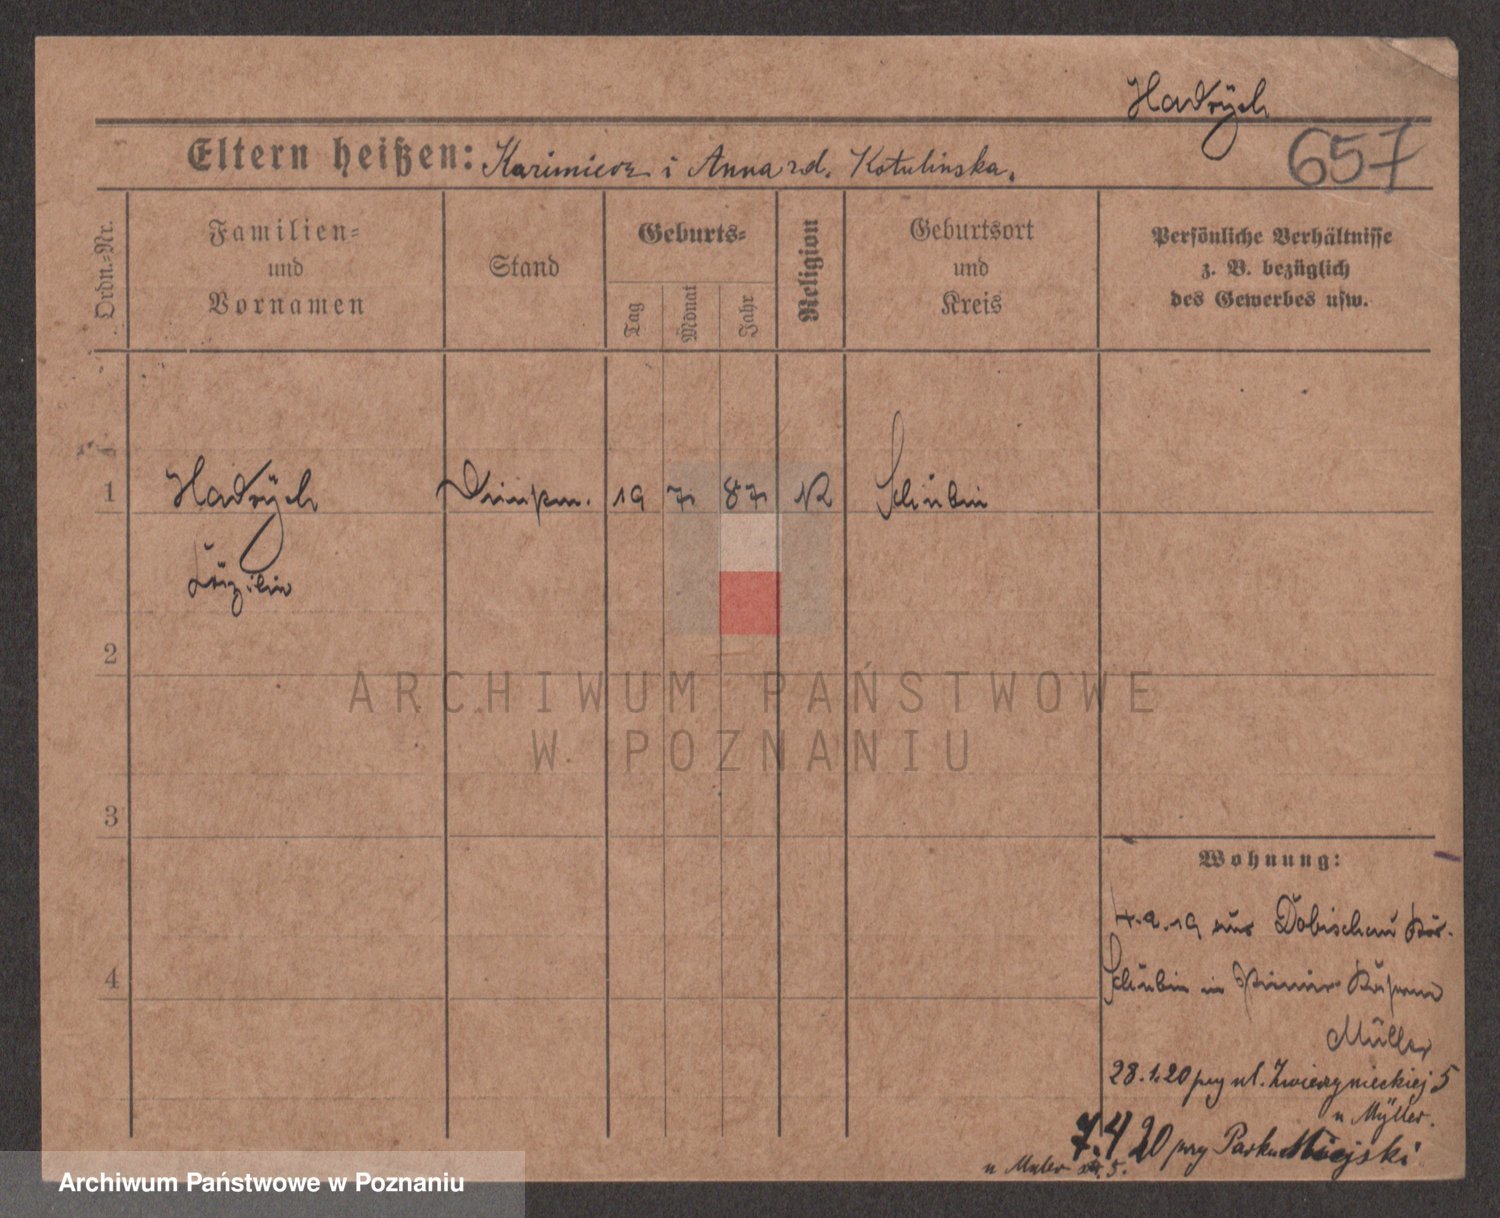 Hadrych
657
Eltern heißen: Kazimierz i Anna rd. Kotulinska.
Ordn.-Nr.
Familien-
und
Vornamen
Stand
Geburts-
Tag
Monat
Jahr
Religion
Geburtsort
und
Kreis
Persönliche Verhältnisse
z. B. bezüglich
des Gewerbes usw.
1
Hadrych
19 7 87
Schubin
2
ARCHIWUM PAŃSTWOWE
W POZNANIU
3
Wohnung:
4.9.19 aus
4
Schubin in
Müller
28.1.20 przy ul. Zwierzynieckiej 5
u Myller.
7.4 20 przy Parku Miejski
u Muler 5.
Archiwum Państwowe w Poznaniu